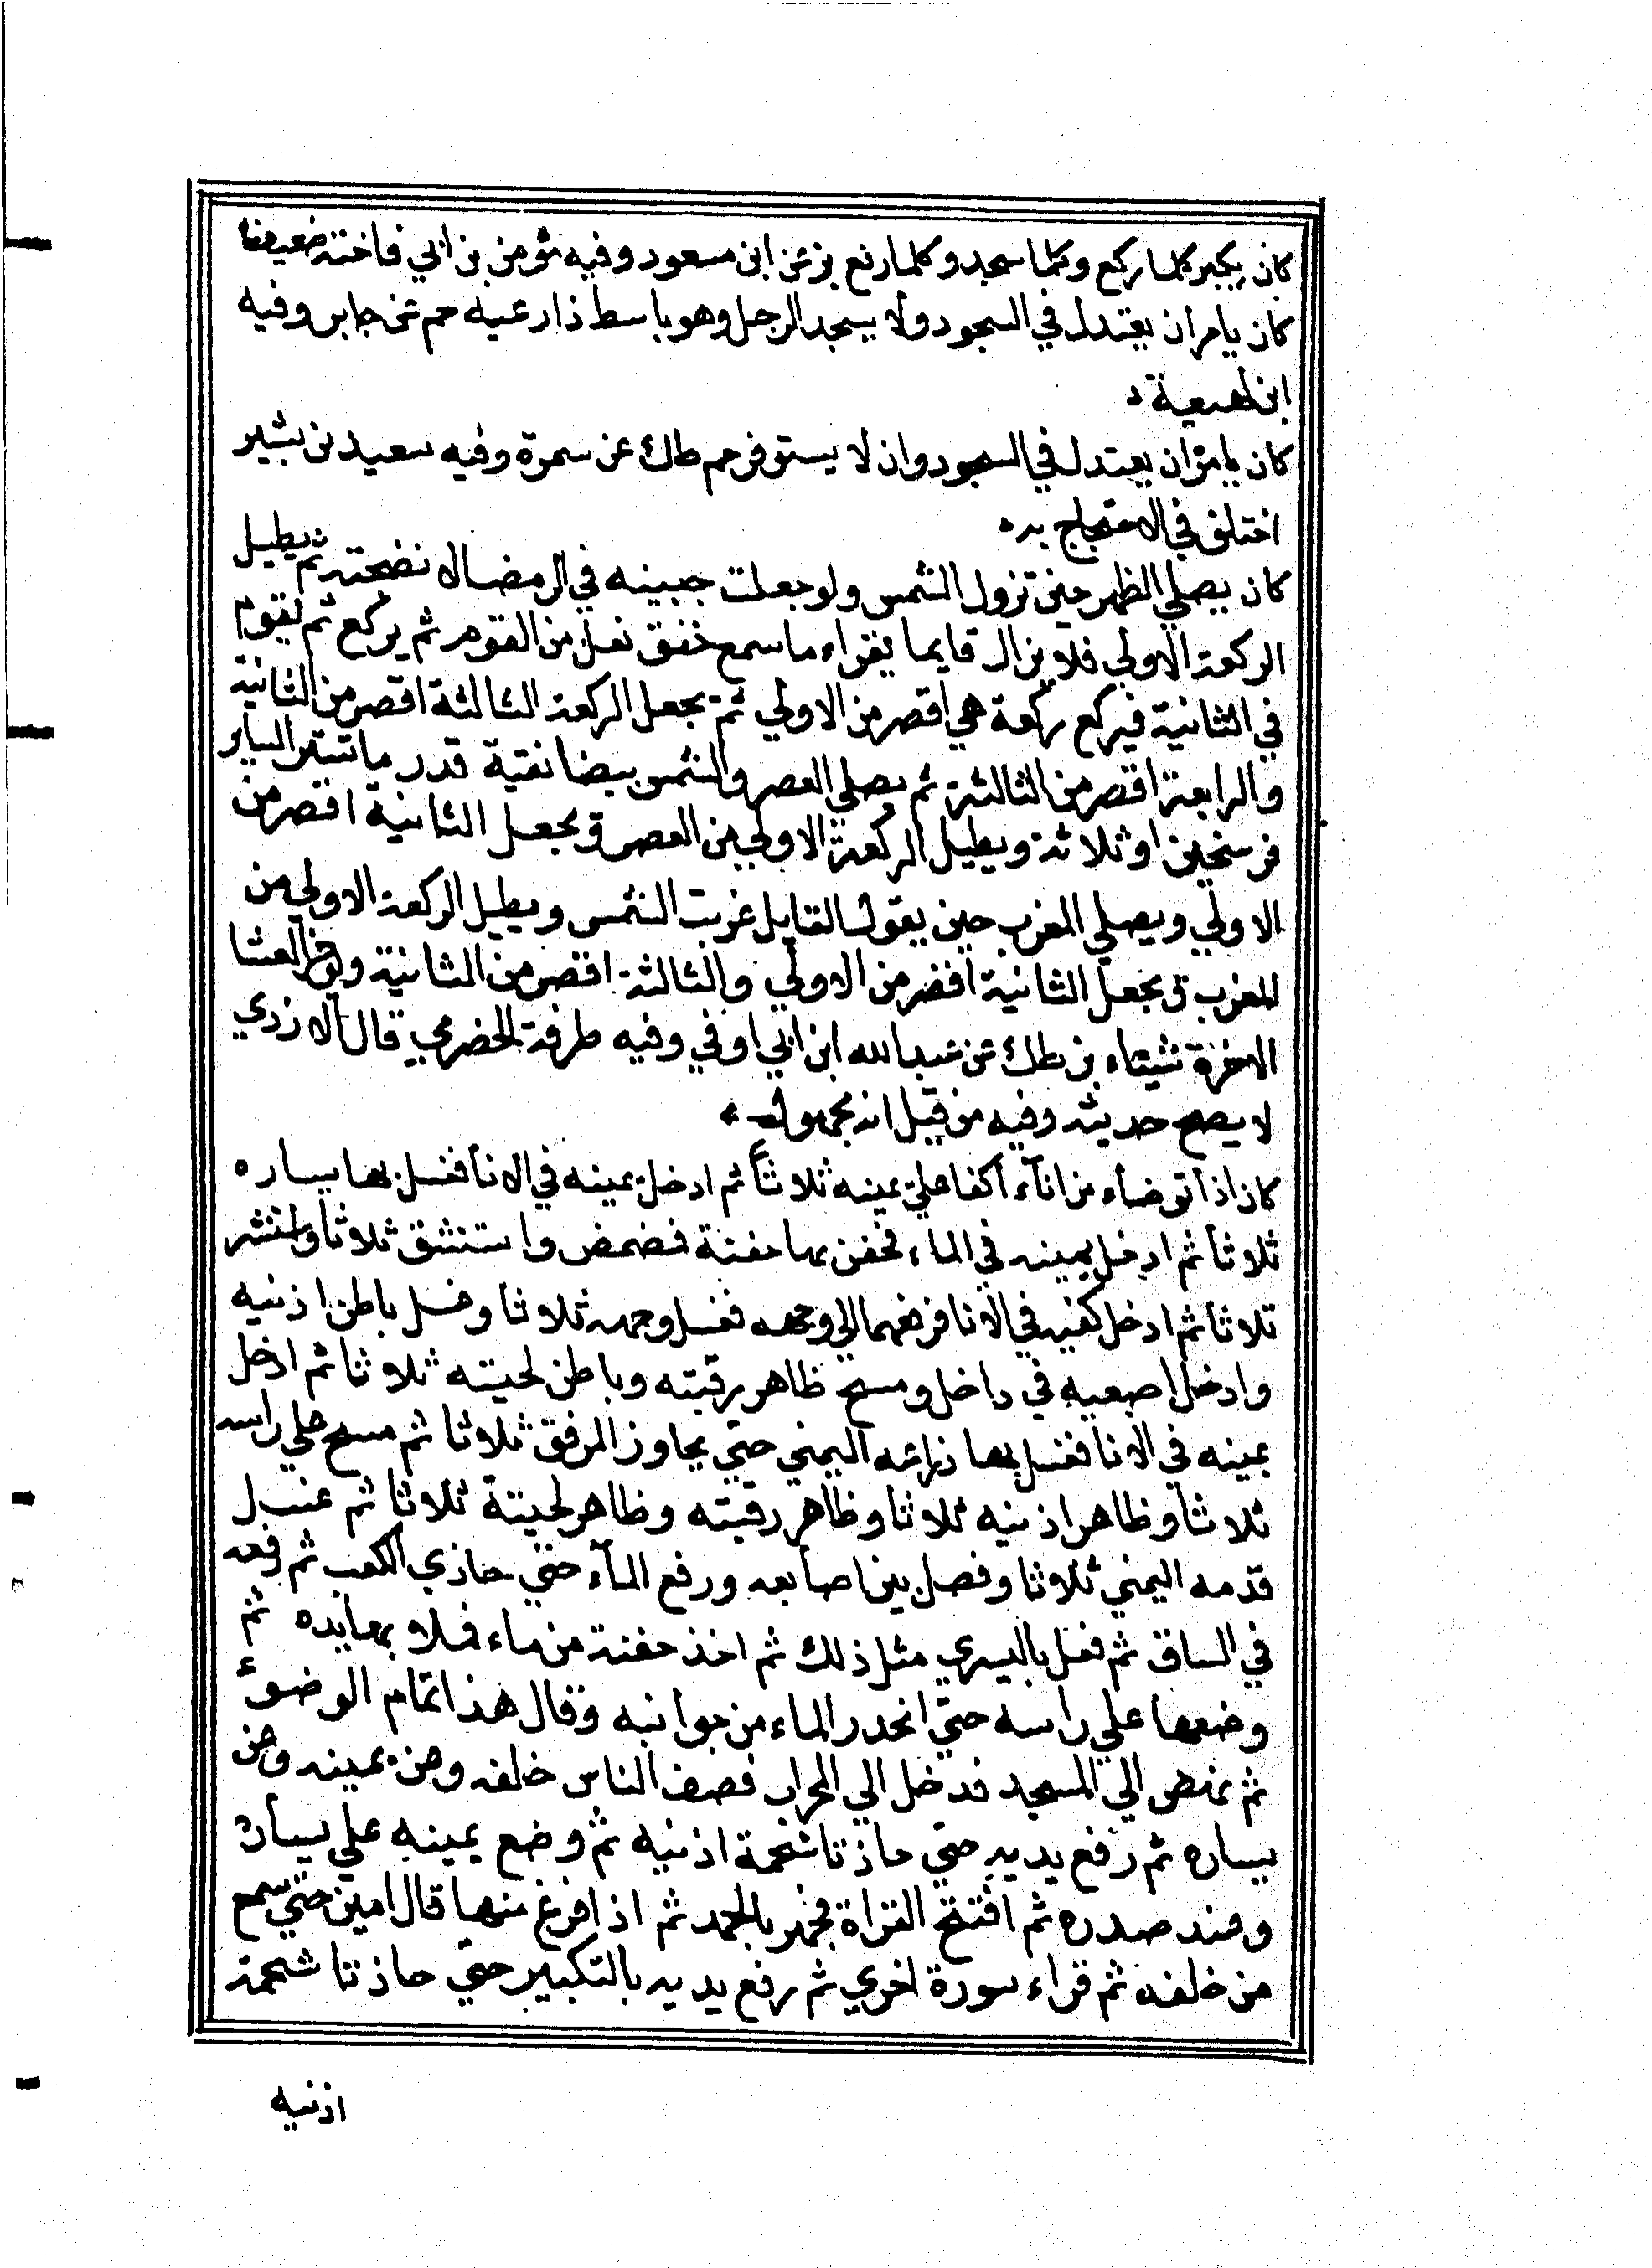 كان يكبر كلما ركع وكلما سجد وكلما رفع بز عن ابن مسعود وفيه ثوير بن ابي فاختة ضعيف
كان يامر ان يعتدل في السجود ولا يسجد الرجل وهو باسط ذارعيه حم عن جابر وفيه
ابن لهيعة
كان يامر ان يعتدل في السجود وان لا يستوفز حم طك عن سمرة وفيه سعيد بن بشير
اختلف في الاحتجاج به
كان يصلي الظهر حين تزول الشمس ولو جعلت جبينه في الرمضا لا نضجته ثم يطيل
الركعة الاولي فلا يزال قايما يقراء ما سمع خفق نعل من القوم ثم يركع ثم يقوم
في الثانية فيركع ركعة هي اقصر من الاولي ثم يجعل الركعة الثالثة اقصر من الثانية
والرابعة اقصر من الثالثة ثم يصلي العصر والشمس بيضا نقية قدر ما تسير الساير
فرسخين او ثلاثة ويطيل الركعة الاولي من العصر ويجعل الثانية اقصر من
الاولي ويصلي المغرب حين يقول القايل غربت الشمس ويطيل الركعة الاولي من
المغرب ويجعل الثانية اقصر من الاولي والثالثة اقصر من الثانية ويوخر العشا
الاخرة شيئاء بز طك عن عبد الله ابن ابي اوفي وفيه طرفة الحضرمي قال الازدي
لا يصح حديثه وفيه من قيل انه مجهول
كان اذا توضاء من اناء اكفا علي يمينه ثلاثا ثم ادخل يمينه في الانا فغسل بها يساره
ثلاثا ثم ادخل يمينه في الماء فحفن بها حفنة فمضمض واستنشق ثلاثا واستنثر
ثلاثا ثم ادخل كفيه في الانا فرفعهما الي وجهه فغسل وجهه ثلاثا وغسل باطن اذنيه
وادخل اصبعيه في داخل ومسح ظاهر رقبته وباطن لحيته ثلاثا ثم ادخل
يمينه في الانا فغسل بها ذراعه اليمني حتي يجاوز المرفق ثلاثا ثم مسح علي راسه
ثلاثا وظاهر اذنيه ثلاثا وظاهر رقبته وظاهر لحيتة ثلاثا ثم غسل
قدمه اليمني ثلاثا وفصل بين اصابعه ورفع الماء حتي حاذي الكعب ثم رفعه
في الساق ثم فعل باليسري مثل ذلك ثم اخذ حفنة من ماء فملا بها يده ثم
وضعها علي راسه حتي انحدر الماء من جوانبه وقال هذا تمام الوضوء
ثم نهض الي المسجد فدخل الي المحراب فصف الناس خلفه وعن يمينه وعن
يساره ثم رفع يديه حتي حاذتا شحمة اذنيه ثم وضع يمينه علي يساره
وعند صدره ثم افتتح القراة فجهر بالحمد ثم اذا فرغ منها قال امين حتي سمع
من خلفه ثم قراء سورة اخري ثم رفع يديه بالتكبير حتي حاذتا شحمة
اذنيه